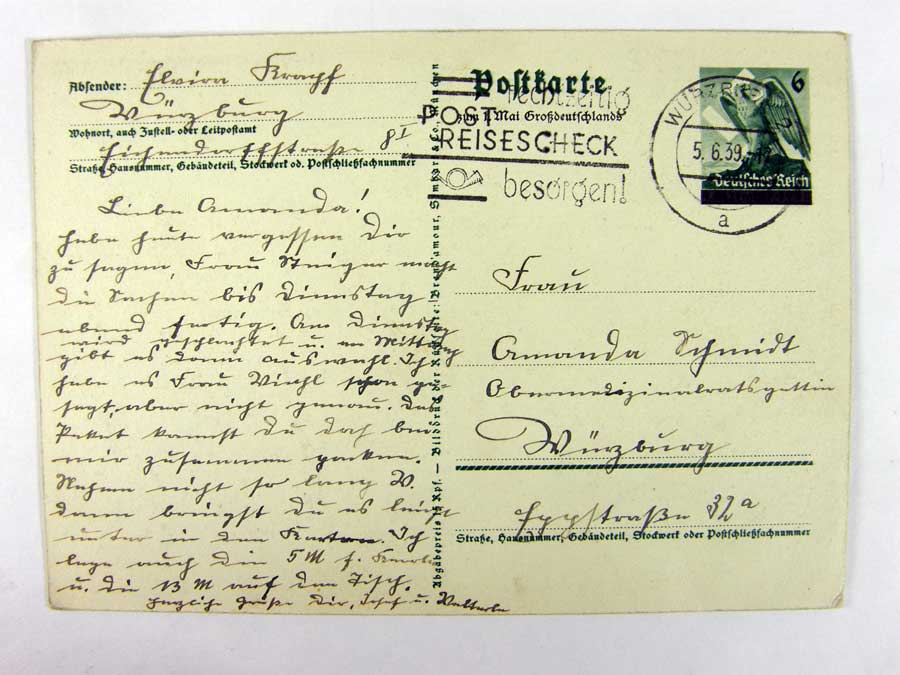 Absender: Elvira Krapf
Würzburg
Wohnort, auch Zustell- oder Leitpostamt
Eichendorffstraße 8 I
Straße, Hausnummer, Gebäudeteil, Stockwerk od. Postschließfachnummer
Liebe Amanda!
habe heute vergessen Dir
zu sagen, Frau Steiger macht
die Sachen bis Dienstag
abend fertig. Am Dienstag
wird geschlachtet u. am Mittag
gibt es dann Auswahl. Ich
habe es Frau Viehl schon ge-
sagt, aber nicht genau. Das
Paket kannst Du doch bei
mir zusammen packen.
Nehme nicht so lang
dann bringst Du es leicht
unter in den Karton. Ich
lege auch die 5 M f. Karl
u. die 13 M auf den Tisch.
herzliche Grüße Dir, Josef u.
Postkarte
zum 1. Mai Großdeutschlands
rechtzeitig
POST
REISESCHECK
besorgen!
WÜRZBURG 2
5.6.39.
a
6
Deutsches Reich
Frau
Amanda Schmidt
Obermedizinalratsgattin
Würzburg
Eppstraße 32a
Straße, Hausnummer, Gebäudeteil, Stockwerk oder Postschließfachnummer
Abgabepreis 15 Rpf. — Bilddruck der Rückseite: